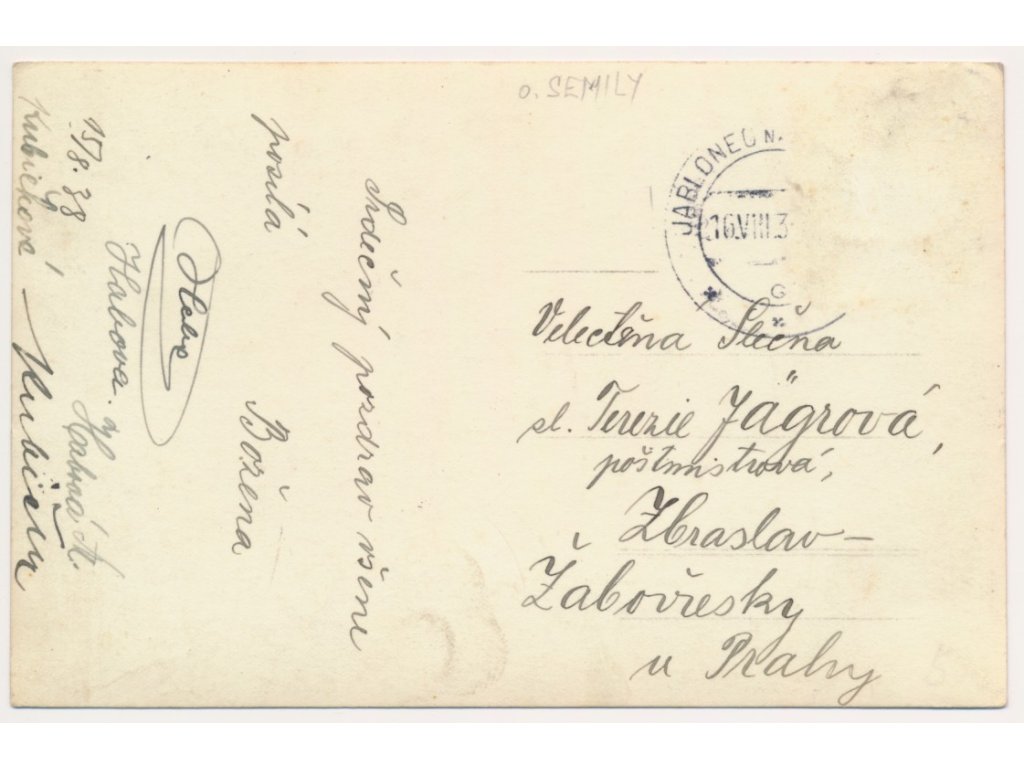 o. SEMILY
JABLONEC N.
16.VIII.3
Srdečný pozdrav všem
posílá Božena
Habova. Habrová A.
15/8.38
Kubíčková
Velectěna Slečna
sl. Terezie Jägrová,
poštmistrová,
Zbraslav-
Žabovřesky
u Prahy
5